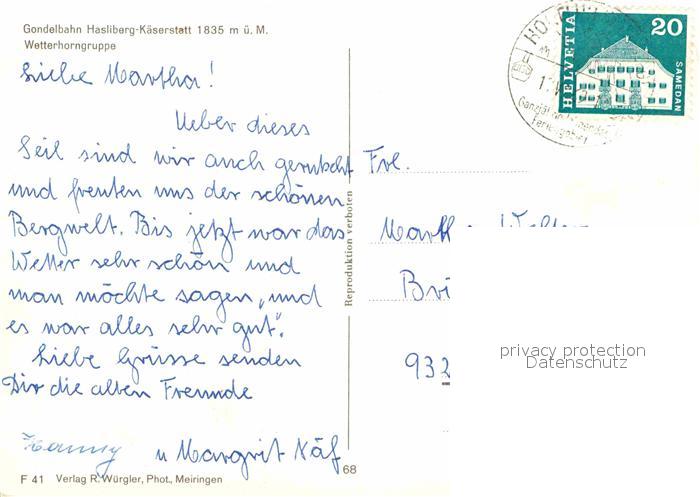 Gondelbahn Hasliberg-Käserstatt 1835 m ü. M.
Wetterhorngruppe
Liebe Martha!
Ueber dieses
Seil sind wir auch gerutscht
und freuten uns der schönen
Bergwelt. Bis jetzt war das
Wetter sehr schön und
man möchte sagen, „und
es war alles sehr gut".
Liebe Grüsse senden
Dir die alten Freunde
Hanny u Margrit Näf
F 41 Verlag R. Würgler, Phot., Meiringen
68
Reproduktion verboten
HELVETIA
20
SAMEDAN
Frl.
932
privacy protection
Datenschutz